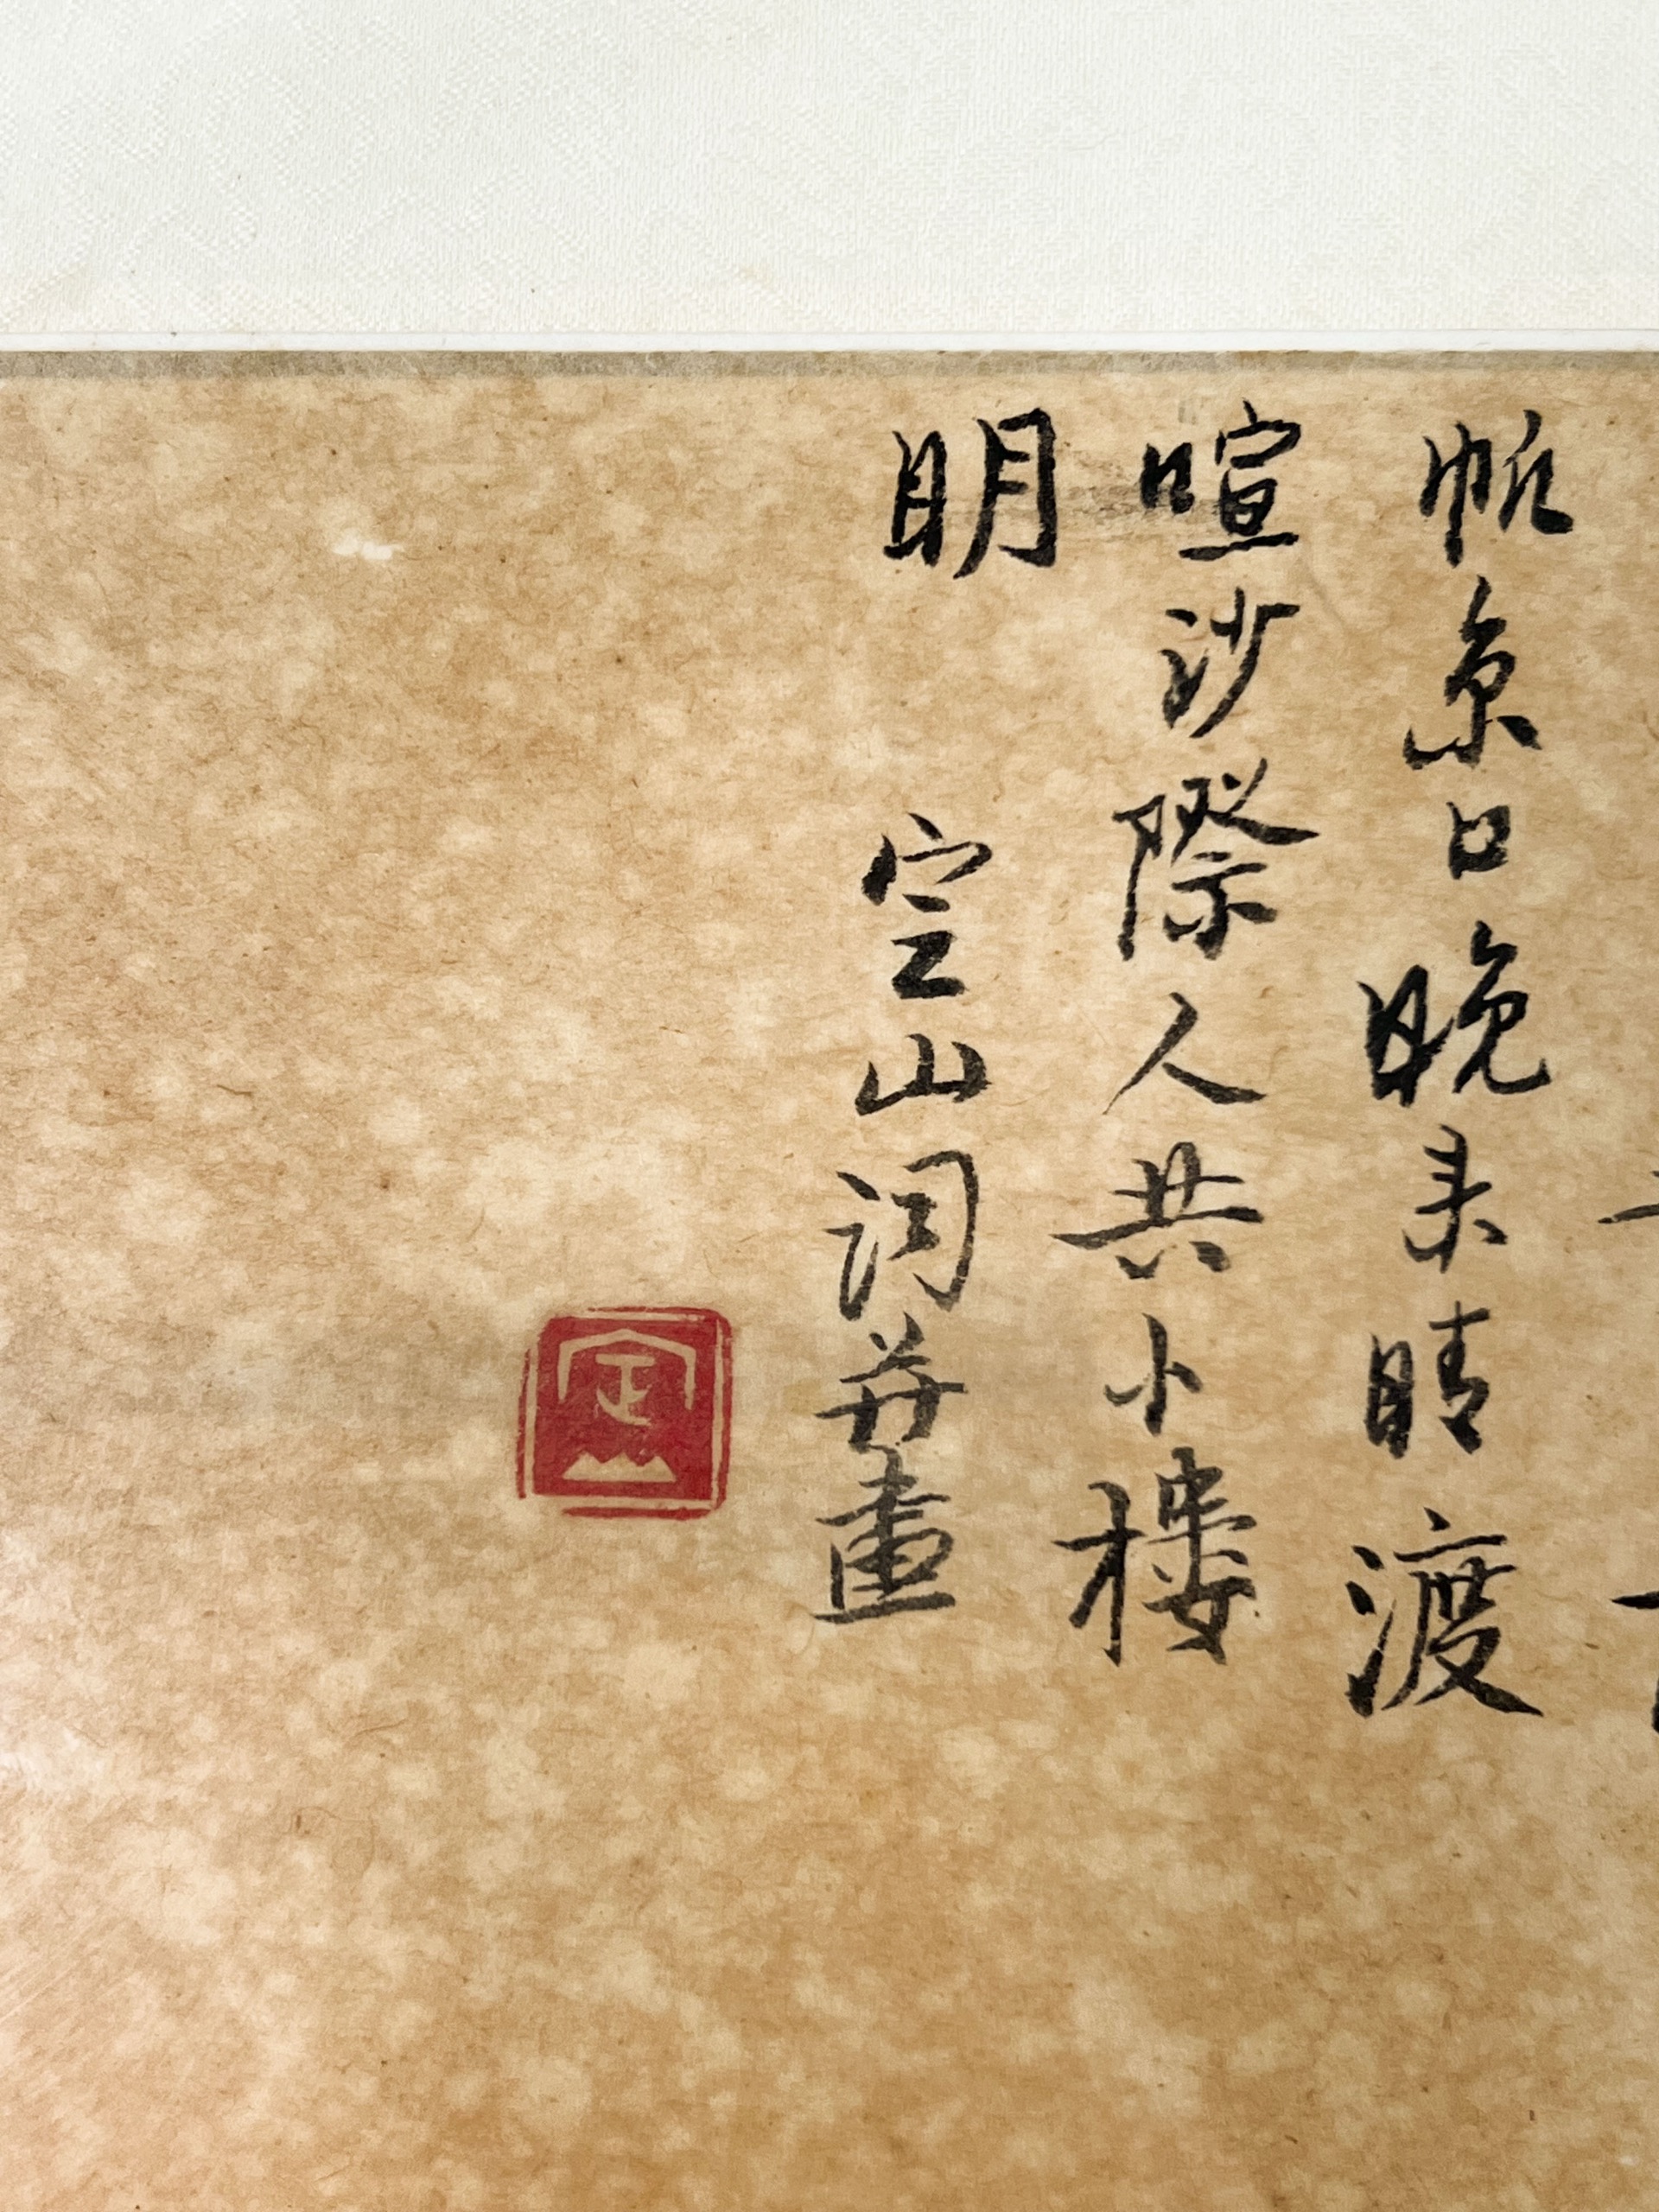 帆京口晚来晴渡
喧沙際人共小樓
明
定山词并畫
定山